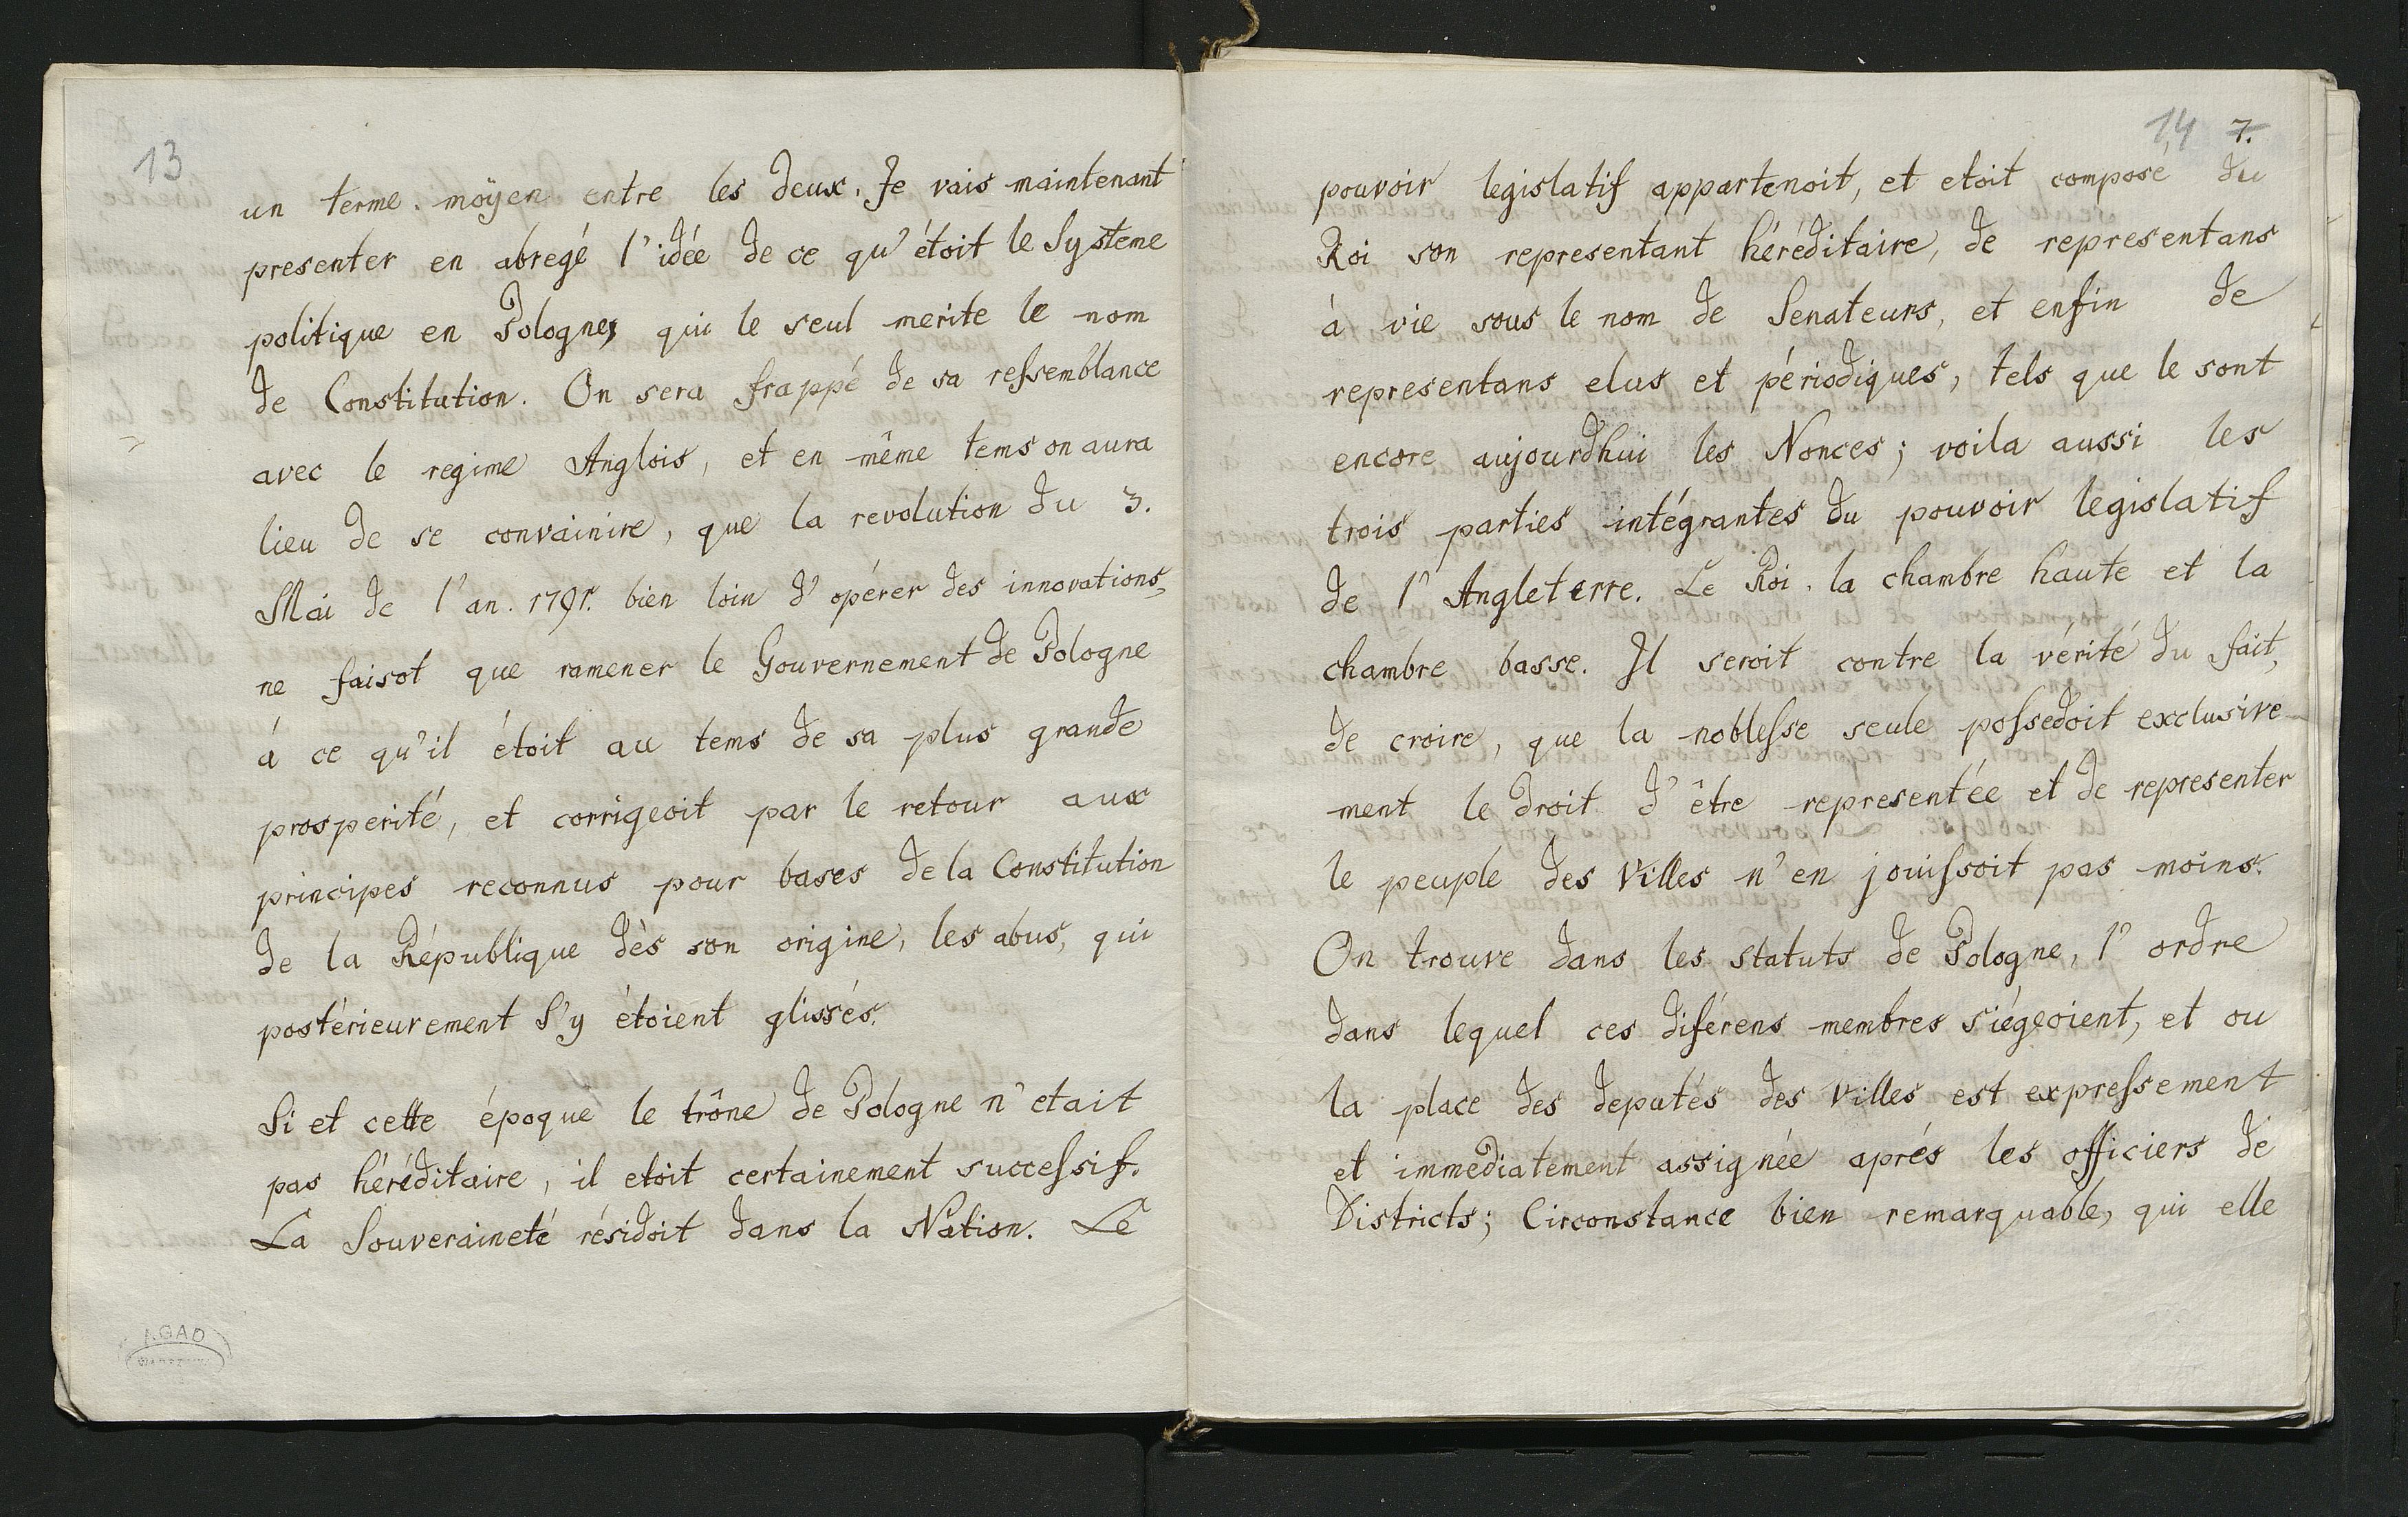 13
un terme moÿen entre les deux. Je vais maintenant
presenter en abregé l'idée de ce qu'étoit le Systeme
politique en Pologne, qui le seul merite le nom
de Constitution. On sera frappé de sa ressemblance
avec le regime Anglois, et en même tems on aura
lieu de se convainire, que la revolution du 3.
Mai de l'an. 1791. bien loin d'opérer des innovations,
ne faisot que ramener le Gouvernement de Pologne
á ce qu'il étoit au tems de sa plus grande
prosperité, et corrigeoit par le retour aux
principes reconnus pour bases de la Constitution
de la République dès son origine, les abus, qui
postérieurement S'y étoient glissés.
Si et cette époque le trône de Pologne n'etait
pas héréditaire, il etoit certainement successif.
La Souveraineté résidoit dans la Nation. Le
AGAD
14 7.
pouvoir legislatif appartenoit, et etoit composé du
Roi son representant héréditaire, de representans
á vie sous le nom de Senateurs, et enfin de
representans elus et périodiques, tels que le sont
encore aujourdhui les Nonces; voila aussi les
trois parties intégrantes du pouvoir legislatif
de l'Angleterre. Le Roi, la chambre haute et la
chambre basse. Il seroit contre la vérité du fait,
de croire, que la noblesse seule possedoit exclusive
ment le droit d'être representée et de representer
le peuple des Villes n'en jouissoit pas moins.
On trouve dans les statuts de Pologne, l'ordre
dans lequel ces diférens membres siégeoient, et ou
la place des deputés des Villes est expressement
et immediatement assignée aprés les officiers de
Districts; Circonstance bien remarquable, qui elle